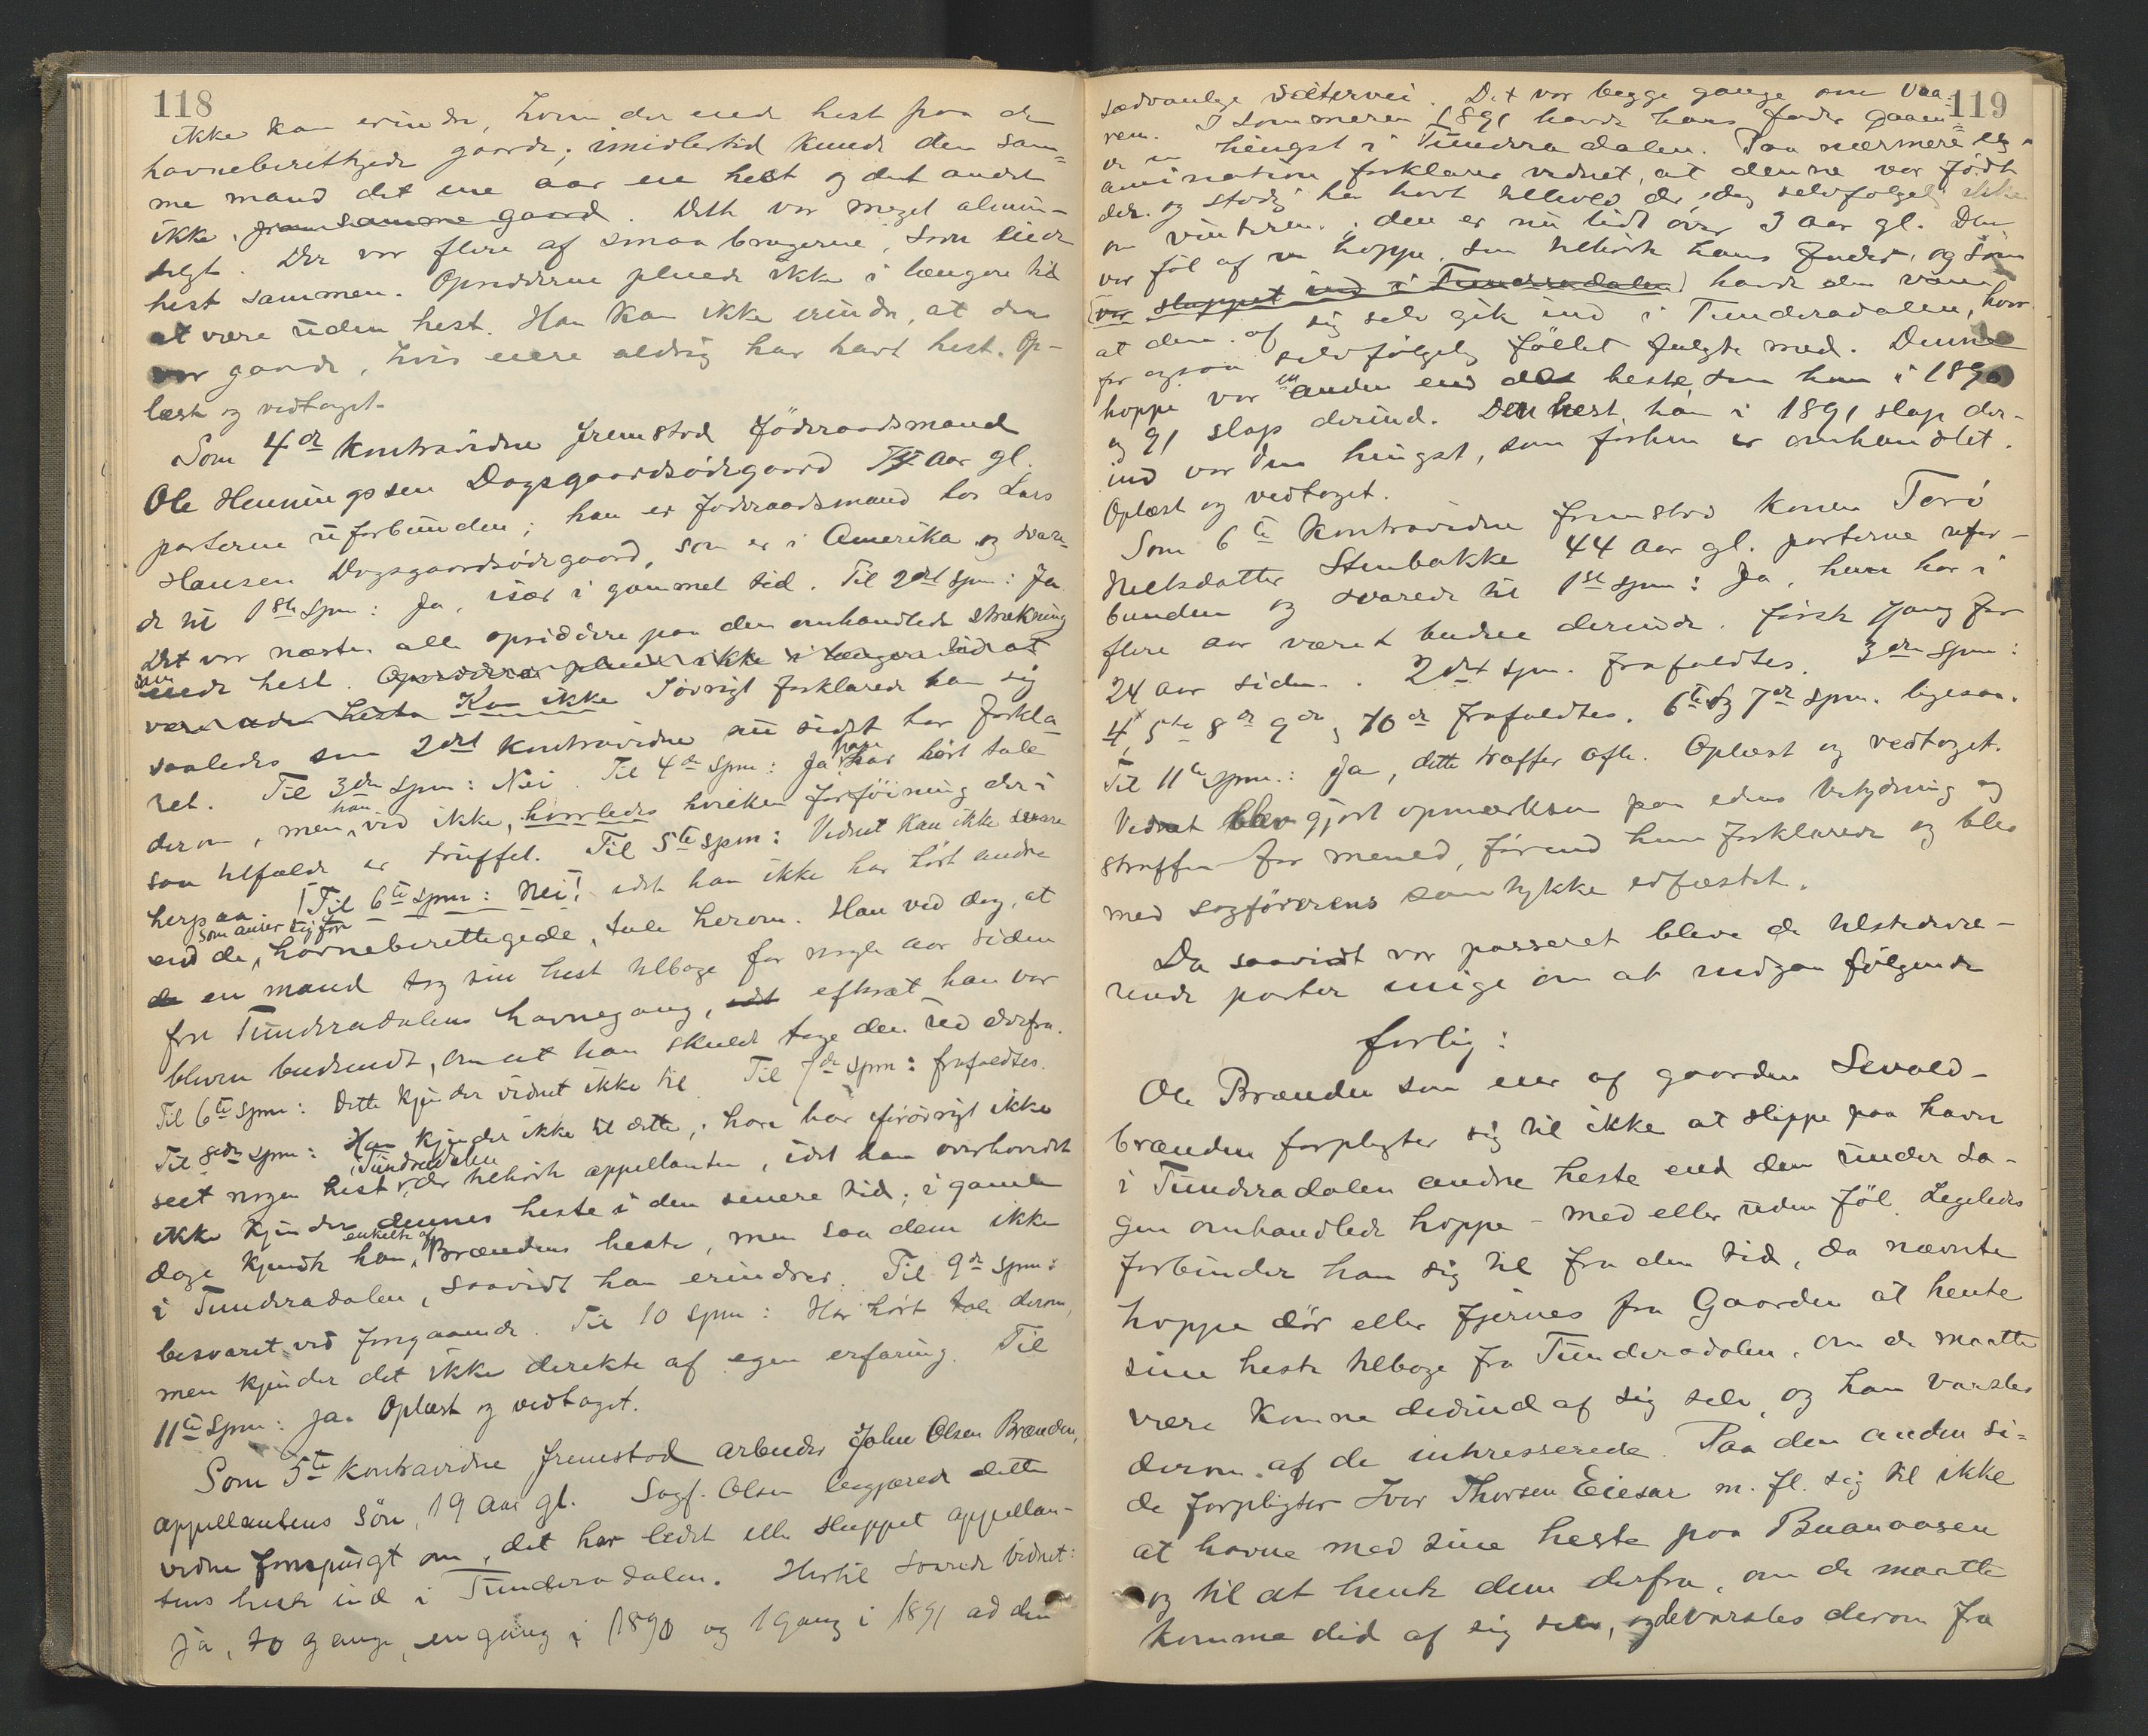 118
ikke kan erindre, hvem der eiede hest paa de
havneberettigede gaarde; imidlertid kunde den sam=
me mand det ene aar eie hest og det andet
ikke, fra samme gaard. Dette var meget almin-
deligt. Der var flere af smaabrugerne, som eiede
hest sammen. Opsidderne pleiede ikke i længere tid
at være uden hest. Han kan ikke erindre, at der
var gaarde, hvis eiere aldrig har havt hest. Op-
læst og vedtaget.
Som 4de Kontravidne fremstod Føderaadsmand
Ole Henningssen Dagsgaardsødegaard aar gl.
parterne uforbunden; han er føderaadsmand hos Lars
Hansen Dagsgaardsødegaard, som er i Amerika og svare-
de til 1ste Spm: Ja, især i gammel tid. Til 2det Spm: Ja
Det var næsten alle opsiddere paa den omhandlede strækning
som
eiede hest. Opsidderne pleiede ikke i længere tid at
være uden heste Kan ikke Iøvrigt forklarede han sig
saaledes som 2det kontravidne nu sidst har forkla
ret. Til 3die Spm: Nei. Til 4de Spm: Ja han har hørt tale
derom, men han ved ikke, hvorledes hvilken forføining der i
saa tilfælde er truffet. Til 5te Spm: Vidnet kan ikke svare
herpaa. [Til 6te Spm: Nei! idet han ikke har hørt andre
som anser sig for
end de havneberettigede, tale herom. Han ved dog, at
de en mand tog sin hest tilbage for nogle aar siden
fra Tundradalens havnegang, idet efterat han var
bleven budsendt, om at han skulde tage den ud derfra.
Til 6te Spm: Dette kjender vidnet ikke til. Til 7de Spm: frafaldtes.
Til 8de Spm: Han kjender ikke til dette; han har forøvrigt ikke
i Tundradalen
seet nogen hest der tilhørte appellanten, idet han overhovedet
ikke kjender dennes heste i den senere tid; i gamle
enkelte af
dage kjendte han Brændens heste, men saa dem ikke
i Tundradalen, saavidt han erindrer. Til 9de Spm:
besvaret ved foregaaende. Til 10 Spm: Har hørt tale derom,
men kjender det ikke direkte af egen erfaring. Til
11te Spm: Ja. Oplæst og vedtaget.
Som 5te Kontravidne fremstod arbeider John Olsen Brænden,
appellantens søn, 19 aar gl. Sagf. Olsen begjærede dette
vidne forespurgt om, det har ledet eller sluppet appellan-
tens heste ind i Tundradalen. Hertil svarede vidnet:
Ja, to gange, en gang i 1890 og 1 gang i 1891 ad den
119
sædvanlige Sætervei. Det var begge gange om Vaa-
ren. I Sommeren 1891 havde hans fader gaaen=
de en hingst i Tundradalen. Paa nærmere ex-
amination forklarer vidnet, at denne var født
der og stedse har havt tilhold der, dog selvfølgelig ikke
om vinteren; den er nu lidt over 3 aar gl. Den
var føl af en hoppe, som tilhørte hans fader, og som
(var sluppet ind i Tundradalen) havde den vane,
at den af sig selv gik ind i Tundradalen, hvor
for ogsaa selvfølgelig føllet fulgte med. Denne
hoppe var en anden end den heste som han i 1890
og 91 slap derind. Den hest, han i 1891 slap der-
ind var den hingst, som forhen er omhandlet.
Oplæst og vedtaget.
Som 6te Kontravidne fremstod konen Tore
Nielsdatter Stenbakke 44 aar gl. parterne ufor-
bunden og svarede til 1ste Spm: Ja, hun har i
flere aar været budeie derinde. første gang for
24 aar siden. 2det spm. frafaldtes. 3die Spm:
4, 5te 8de 9de, 10de frafaldtes. 6te og 7de Spm. ligesaa.
Til 11te Spm.: Ja, dette træffer ofte. Oplæst og vedtaget.
Vidnet blev gjort opmærksom paa edens betydning og
straffen for mened, førend hun forklarede og blev
med sagførerens samtykke edfæstet.
Da saavidt var passeret bleve de tilstedevæ-
rende parter enige om at indgaa følgende
forlig:
Ole Brænden som eier af gaarden Sevald-
brænden forpligter sig til ikke at slippe paa havn
i Tundradalen andre heste end den under sa-
gen omhandlede hoppe – med eller uden føl. Ligeledes
forbinder han sig til fra den tid, da nævnte
hoppe dør eller fjernes fra Gaarden at hente
sine heste tilbage fra Tundradalen, om de maatte
være komne didind af sig selv, og han varsles
derom af de interesserede. Paa den anden si=
de forpligter Iver Thorsen Eiesar m. fl. sig til ikke
at havne med sine heste paa Buanaasen
og til at hente dem derfra, om de maatte
komme did af sig selv, og de varsles derom fra